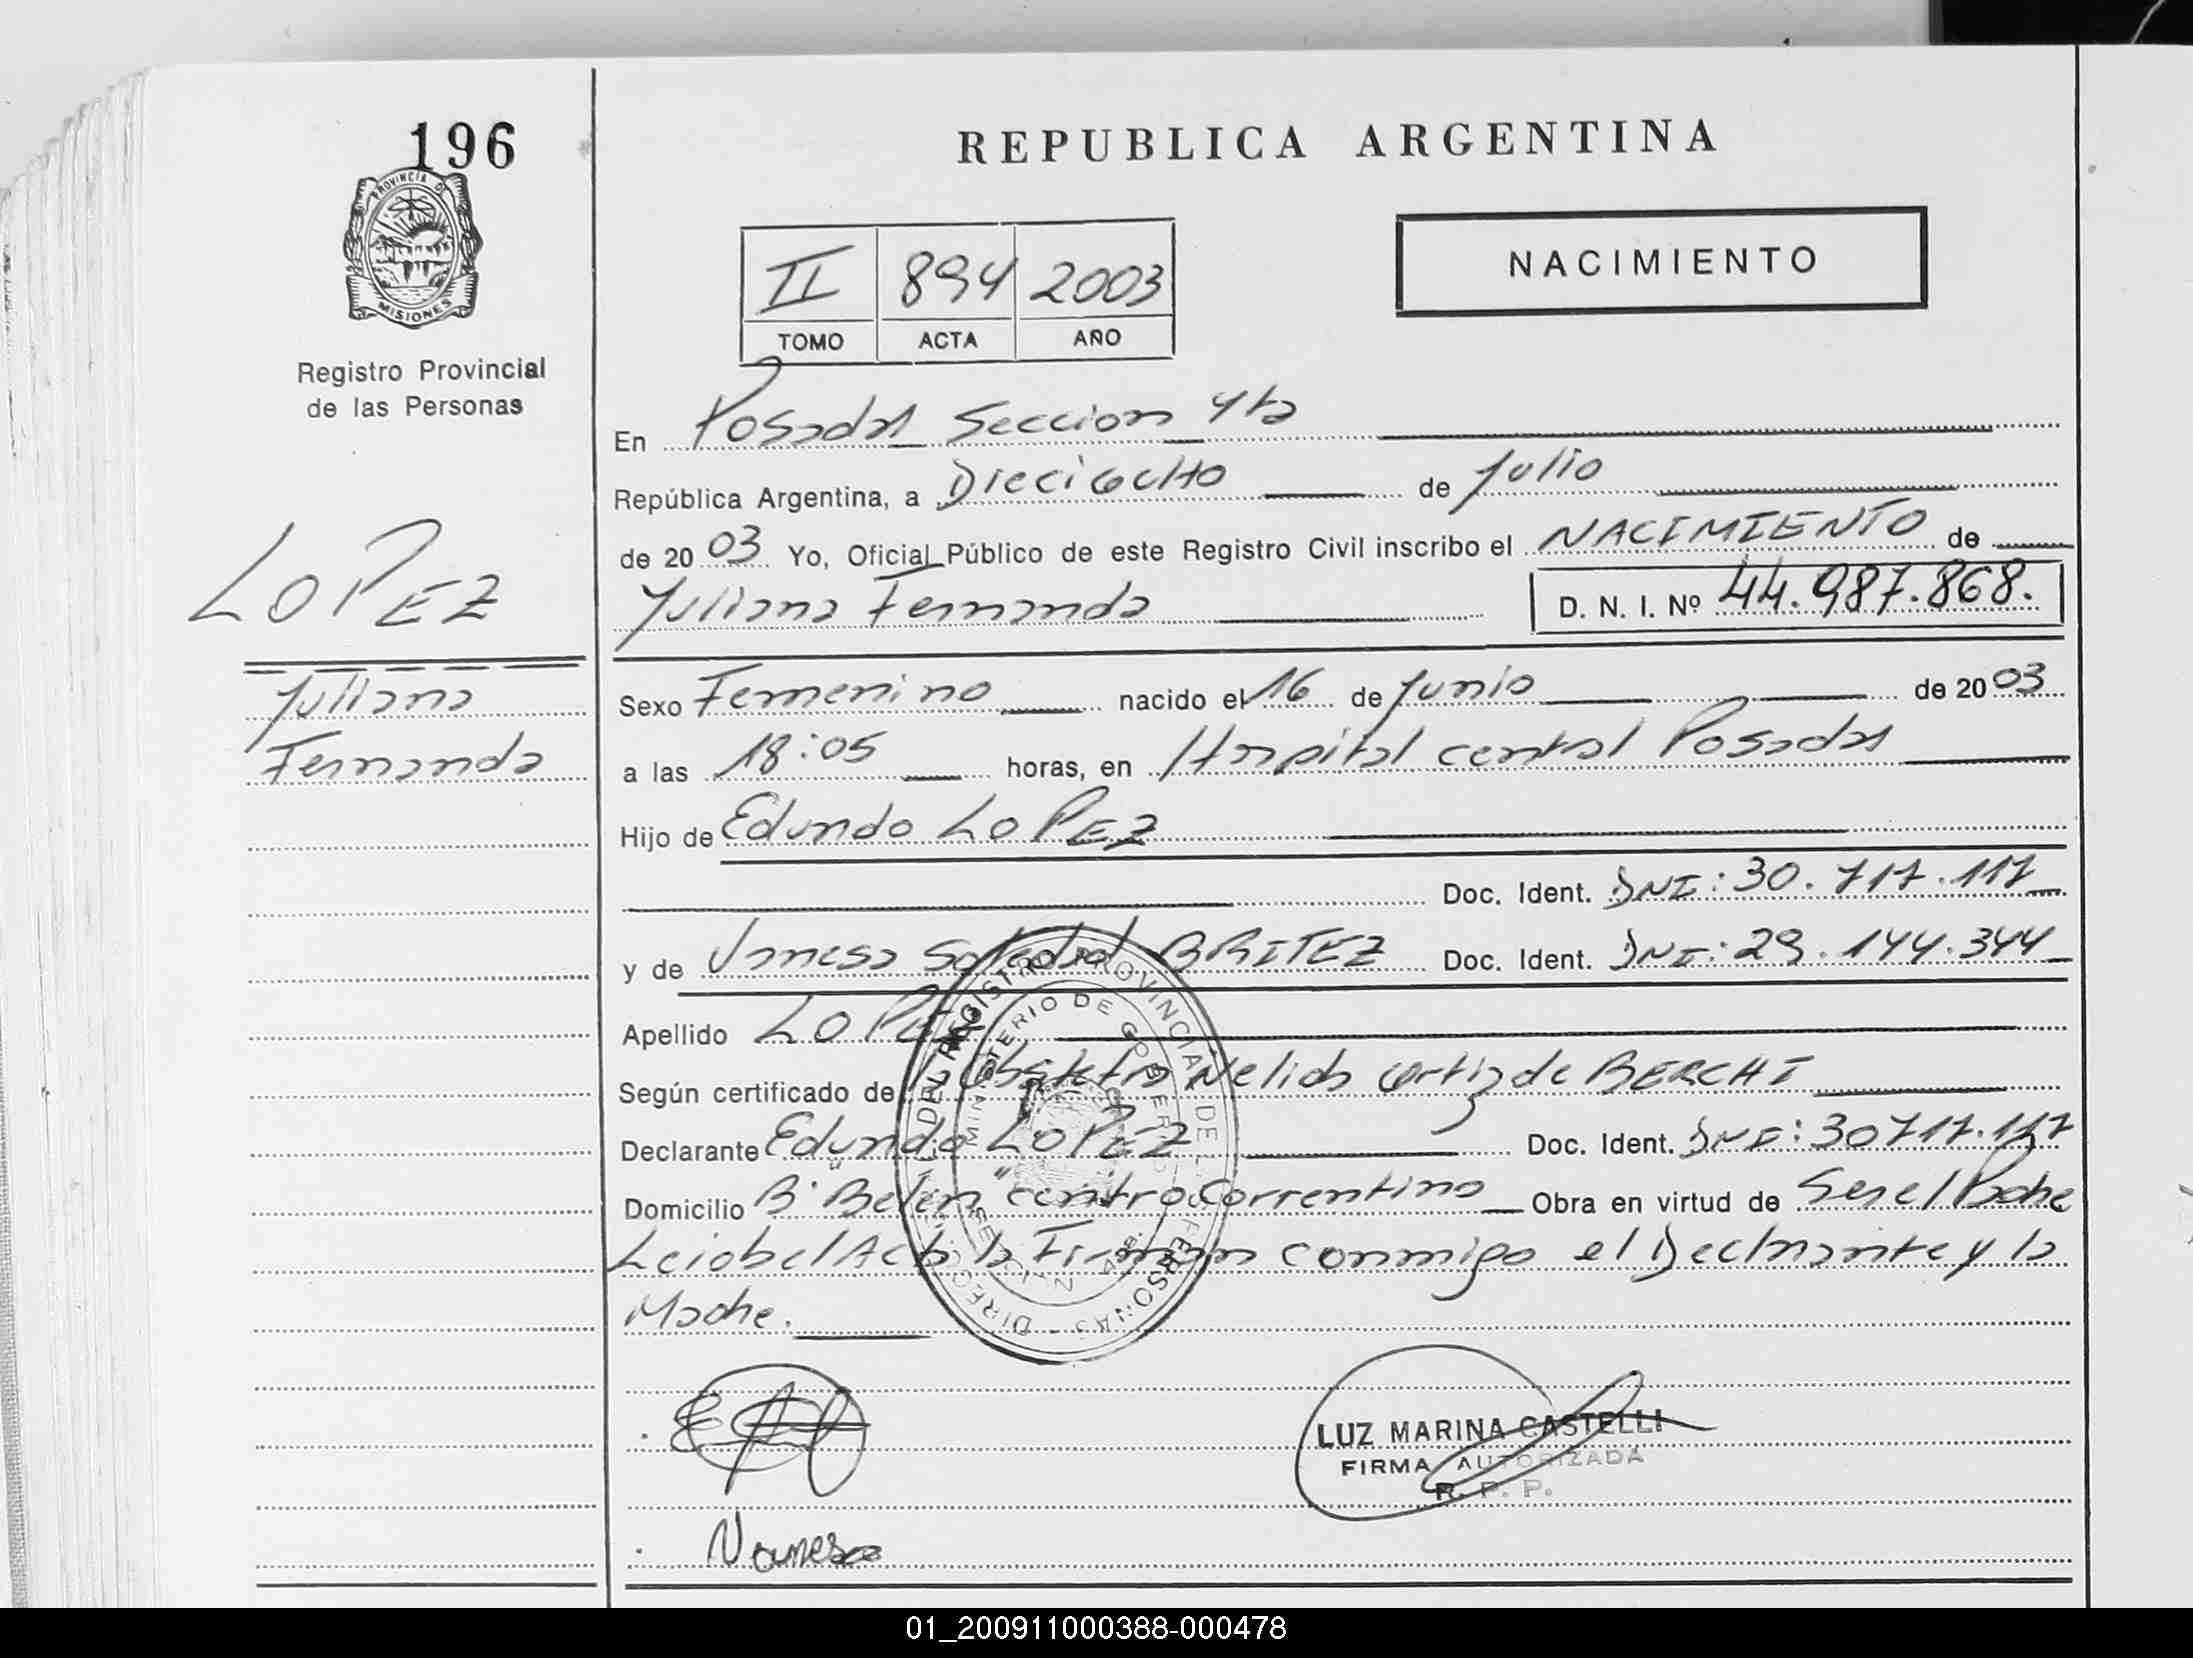 196
REPUBLICA ARGENTINA
PROVINCIA DE
MISIONES
Registro Provincial
de las Personas
II 894 2003
TOMO ACTA AÑO
NACIMIENTO
En Posadas Seccion 4ta
República Argentina, a Dieciocho de Julio
de 2003 Yo, Oficial Público de este Registro Civil inscribo el NACIMIENTO de
Juliana Fernanda D. N. I. Nº 44.987.868.
LOPEZ
Juliana
Fernanda
Sexo Femenino nacido el 16 de Junio de 2003
a las 18:05 horas, en Hospital central Posadas
Hijo de Edundo LOPEZ
Doc. Ident. DNI: 30.717.117
y de Vanesa Soledad BRITEZ Doc. Ident. DNI: 29.144.344
Apellido LOPEZ
Según certificado de la Obstetra Nelida Ortiz de BERCHI
Declarante Edundo LOPEZ Doc. Ident. DNI: 30717.117
Domicilio B° Belen "centro Correntino Obra en virtud de Ser el Padre
Leiobel Acta la Firman conmigo el Declarante y la
Madre.
DIRECC. GRAL. DEL REGISTRO PROVINCIAL DE LAS PERSONAS
MINISTERIO DE GOBIERNO
SECCION 4ta.
LUZ MARINA CASTELLI
FIRMA AUTORIZADA
R. P. P.
Vanesa
01_200911000388-000478